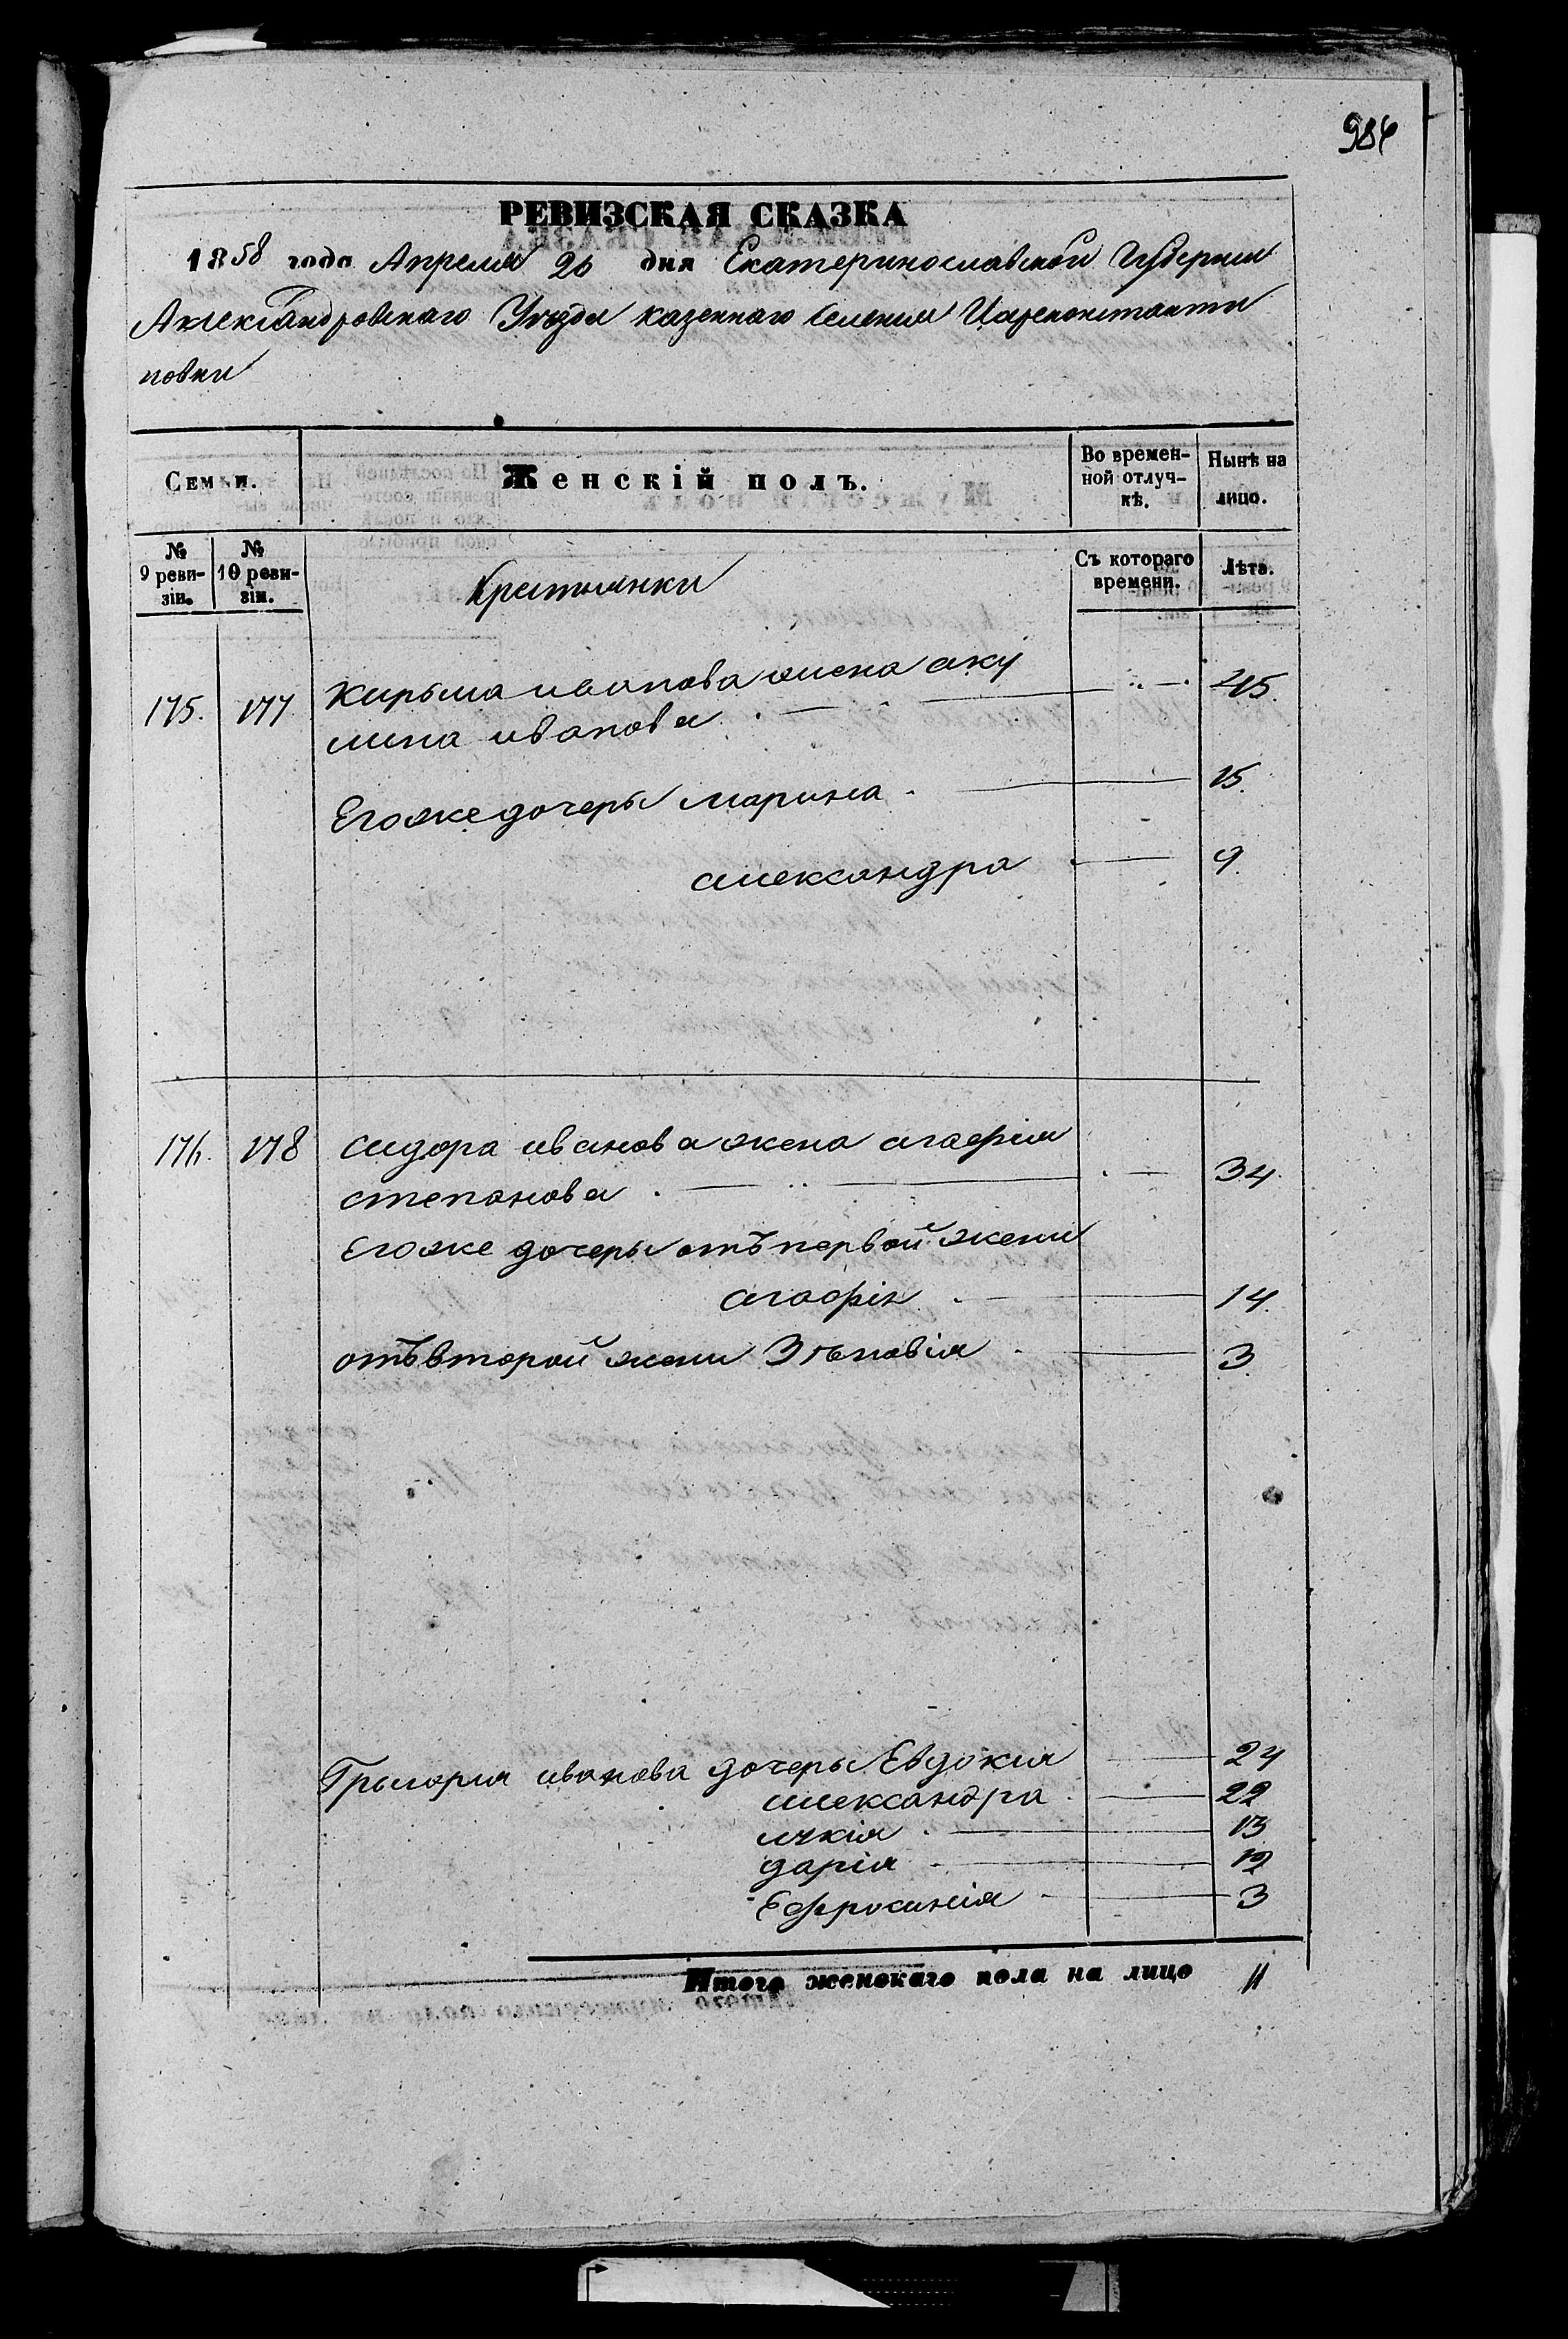 984
РЕВИЗСКАЯ СКАЗКА
1858 года Апреля 20 дня Екатеринославской Губернии
Александровскаго Уѣзда казеннаго Селения Цареконстанти
новки
Семьи.
Женскій полъ.
Во времен-
ной отлуч-
кѣ.
Нынѣ на
лицо.
№
9 реви-
зіи.
№
10 реви-
зіи.
Крестьянки
Съ котораго
времени.
Лѣта.
175. 177 Кирыла иванова жена аку
лина иванова 45.
Егоже дочеры марина 15.
александра 9.
176. 178 сидора иванова жена агафия
степанова 34.
Егоже дочеры отъ первой жены
агафія 14.
отъ второй жены Зѣновія 3.
Грыгория иванова дочеры Евдокия 24
александра 22
лукія 13
дарія 12
Ефросинія 3
Итого женскаго пола на лицо 11